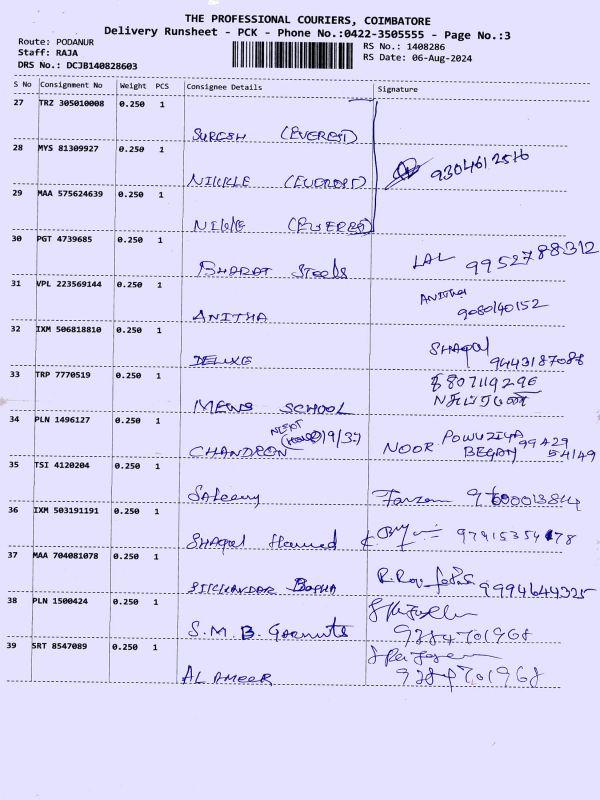 THE PROFESSIONAL COURIERS, COIMBATORE
Delivery Runsheet - PCK - Phone No.:0422-3505555 - Page No.:3
Route: PODANUR
Staff: RAJA
DRS No.: DCJB140828603
RS No.: 1408286
RS Date: 06-Aug-2024
S No Consignment No Weight PCS Consignee Details Signature
27 TRZ 305010008 0.250 1
SURESH (EVEREST)
28 MYS 81309927 0.250 1
9304612516
NIKKLE
29 MAA 575624639 0.250 1
30 PGT 4739685 0.250 1
BHARAT Steels LAL 9952788312
31 VPL 223569144 0.250 1
ANITHA
ANITHA 9080140152
32 IXM 506818810 0.250 1
DELUXE
9443187088
33 TRP 7770519 0.250 1
8807119296
MEWS SCHOOL
34 PLN 1496127 0.250 1
NEXT
CHANDRON NOOR BEGAM 99429 54149
35 TSI 4120204 0.250 1
36 IXM 503191191 0.250 1
SHAqul Hameed
37 MAA 704081078 0.250 1
9994644325
38 PLN 1500424 0.250 1
S.M.B. Garments 9284701968
39 SRT 8547089 0.250 1
AL AMEER 9284701968